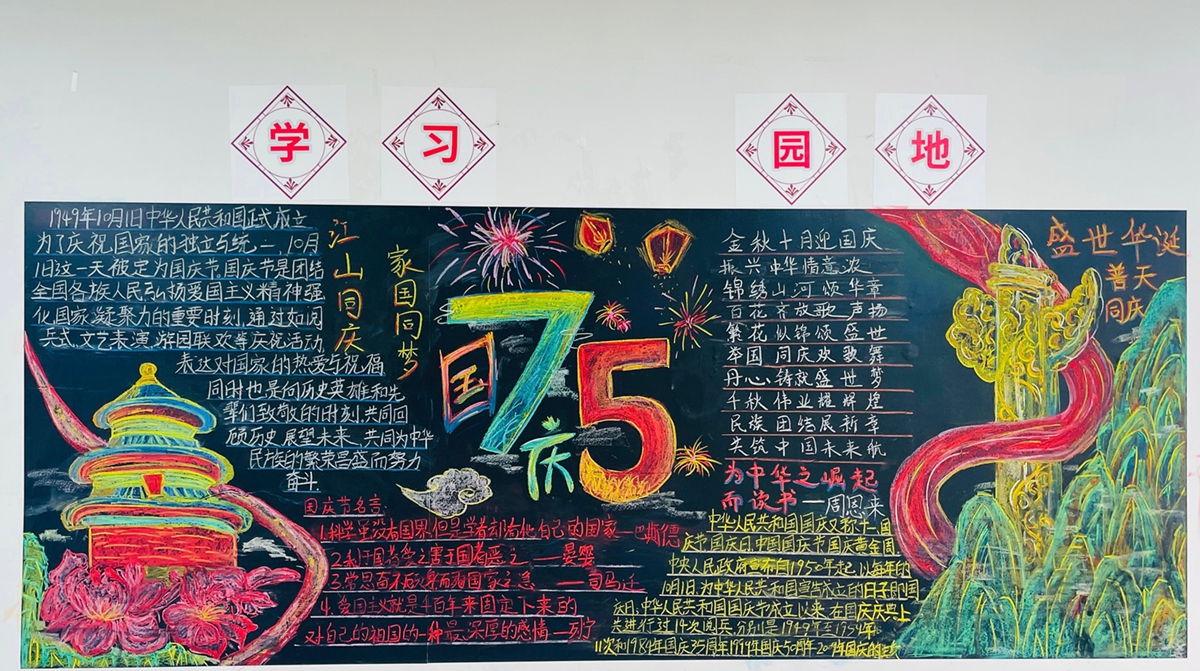 学 习 园 地
1949年10月1日中华人民共和国正式成立
为了庆祝国家的独立与统一,10月
1日这一天被定为国庆节,国庆节是团结
全国各族人民弘扬爱国主义精神强
化国家凝聚力的重要时刻,通过如阅
兵式,文艺表演,游园联欢等庆祝活动,
表达对国家的热爱与祝福
同时也是向历史英雄和先
辈们致敬的时刻,共同回
顾历史,展望未来,共同为中华
民族的繁荣昌盛而努力
奋斗
江山同庆
家国同梦
国庆
75
金秋十月迎国庆
振兴中华情意浓
锦绣山河颂华章
百花齐放歌声扬
繁花似锦颂盛世
举国同庆欢歌舞
丹心铸就盛世梦
千秋伟业耀辉煌
民族团结展新章
共筑中国未来航
为中华之崛起
而读书—周恩来
盛世华诞
普天
同庆
国庆节名言:
1.科学是没有国界,但是学者却有他自己的国家—巴斯德
2.利于国者爱之害于国者恶之——晏婴
3.常思奋不顾身而殉国家之急——司马迁
4.爱国主义就是千百年来固定下来的
对自己的祖国的一种最深厚的感情—列宁
中华人民共和国国庆又称十一国
庆节国庆日,中国国庆节国庆黄金周
中央人民政府宣布自1950年起,以每年的
10月1日,为中华人民共和国宣告成立的日子,即国
庆日,中华人民共和国国庆节成立以来,在国庆庆典上
共进行过14次阅兵,分别是1949年至1959年
11次和1984年国庆35周年1999年国庆50周年2009年国庆的